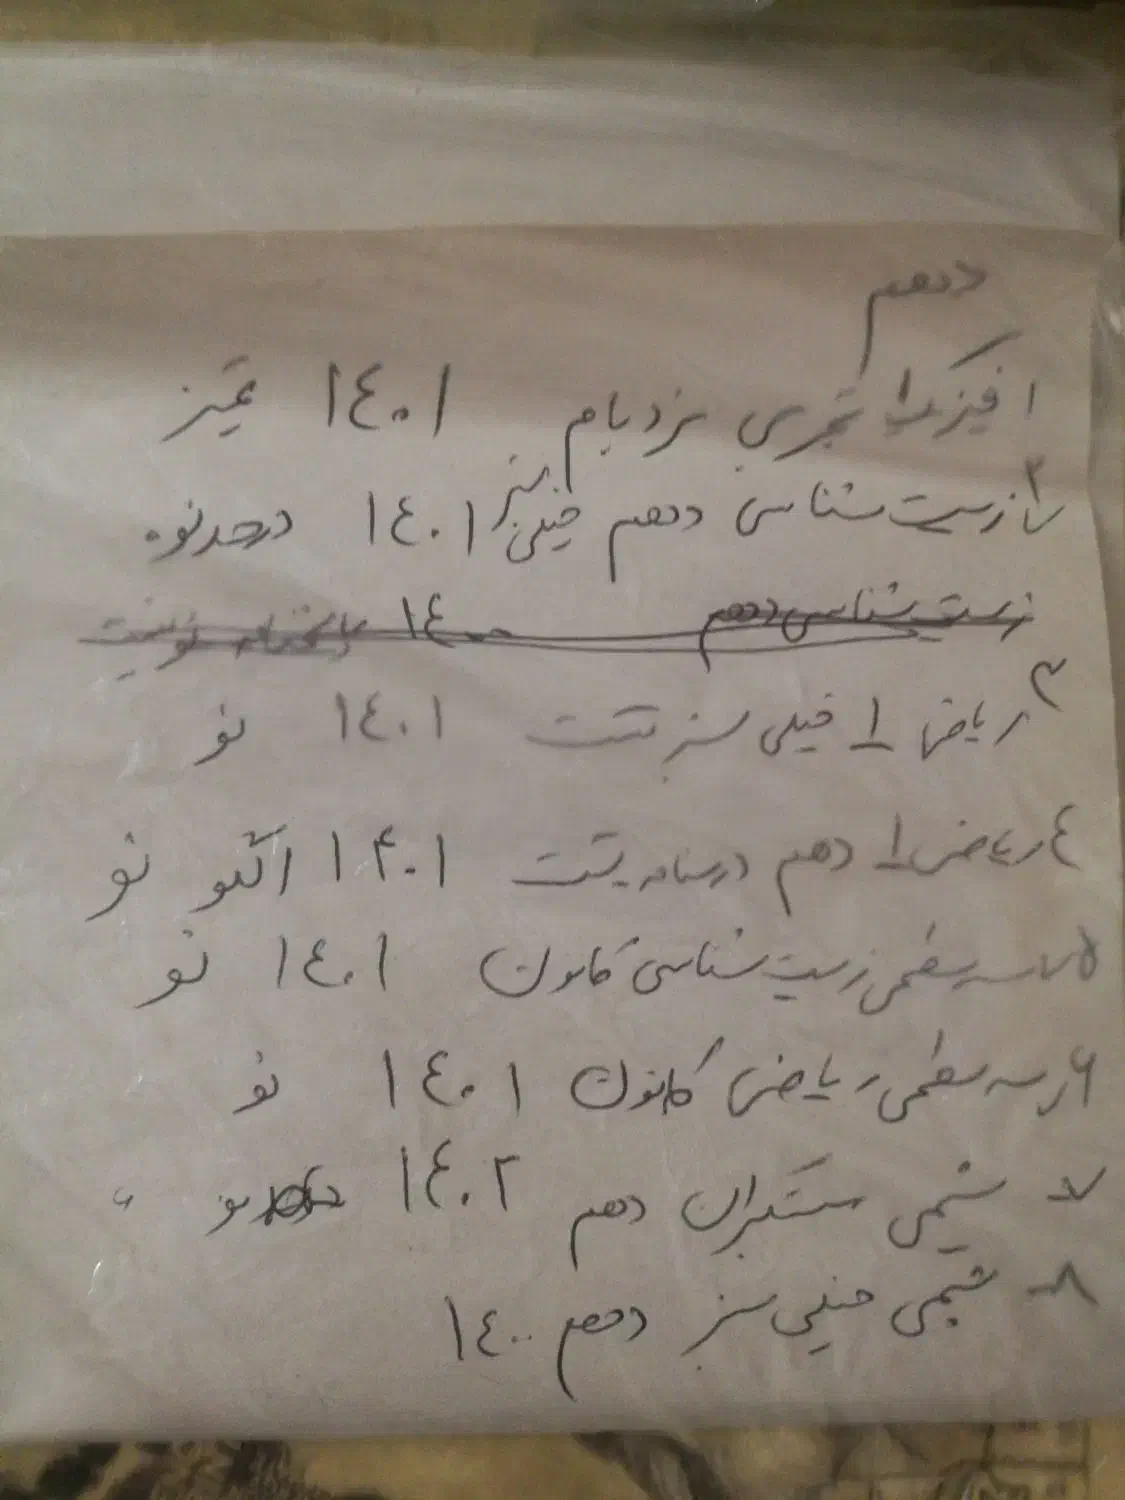 دهم
۱ فیزیک ۱ تجربی نردبام ۱٤۰۱ تمیز
۲ زیست شناسی دهم خیلی سبز ۱٤۰۱ در حد نو
زیست شناسی دهم ۱٤۰۰
۳ ریاضی ۱ خیلی سبز تست ۱٤۰۱ نو
٤ ریاضی ۱ دهم درسنامه تست ۱۴۰۱ الگو نو
۵ سه سطحی زیست شناسی کانون ۱٤۰۱ نو
۶ سه سطحی ریاضی کانون ۱٤۰۱ نو
۷ شیمی مبتکران دهم ۱٤۰۲ نو
۸ شیمی خیلی سبز دهم ۱٤۰۰